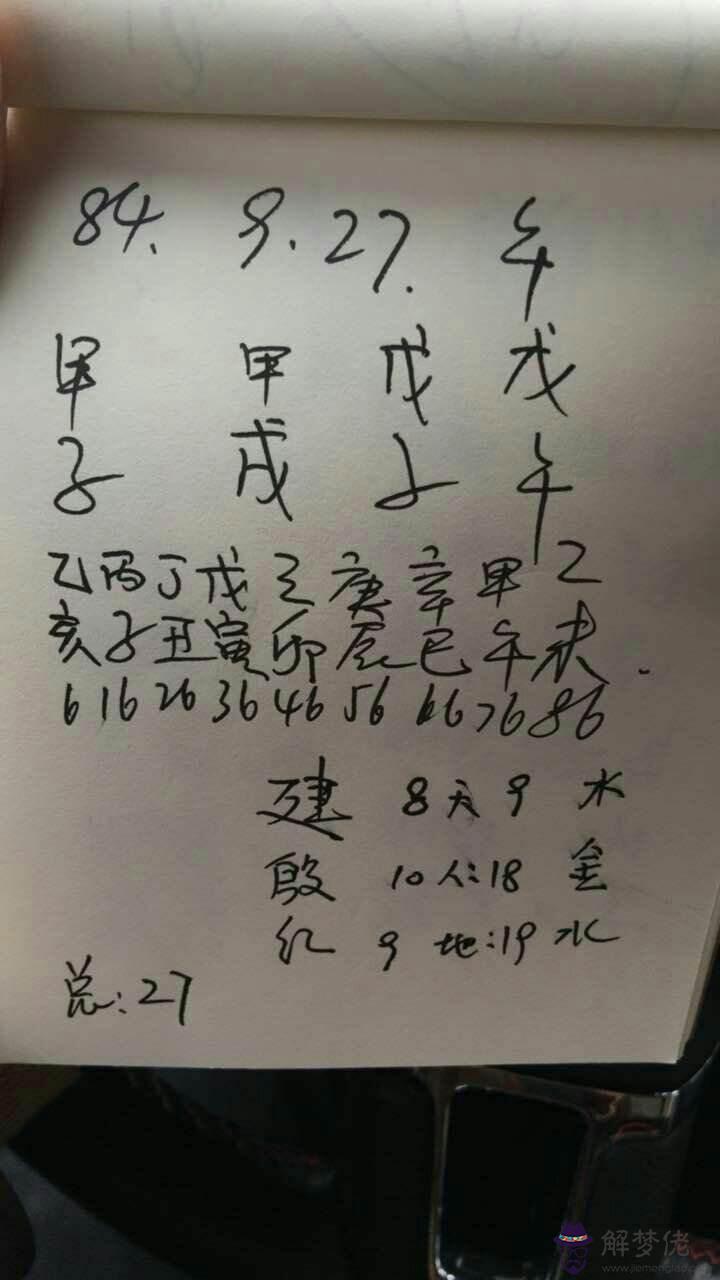 84. 9. 27. 午
甲 甲 戊 戊
子 戌 子 午
乙 丙 丁 戊 己 庚 辛 甲 乙
亥 子 丑 寅 卯 辰 巳 午 未
6 16 26 36 46 56 66 76 86
建 8 天 9 水
殷 10 人:18 金
红 9 地:19 水
总:27
解梦佬
www.jiemenglao.com